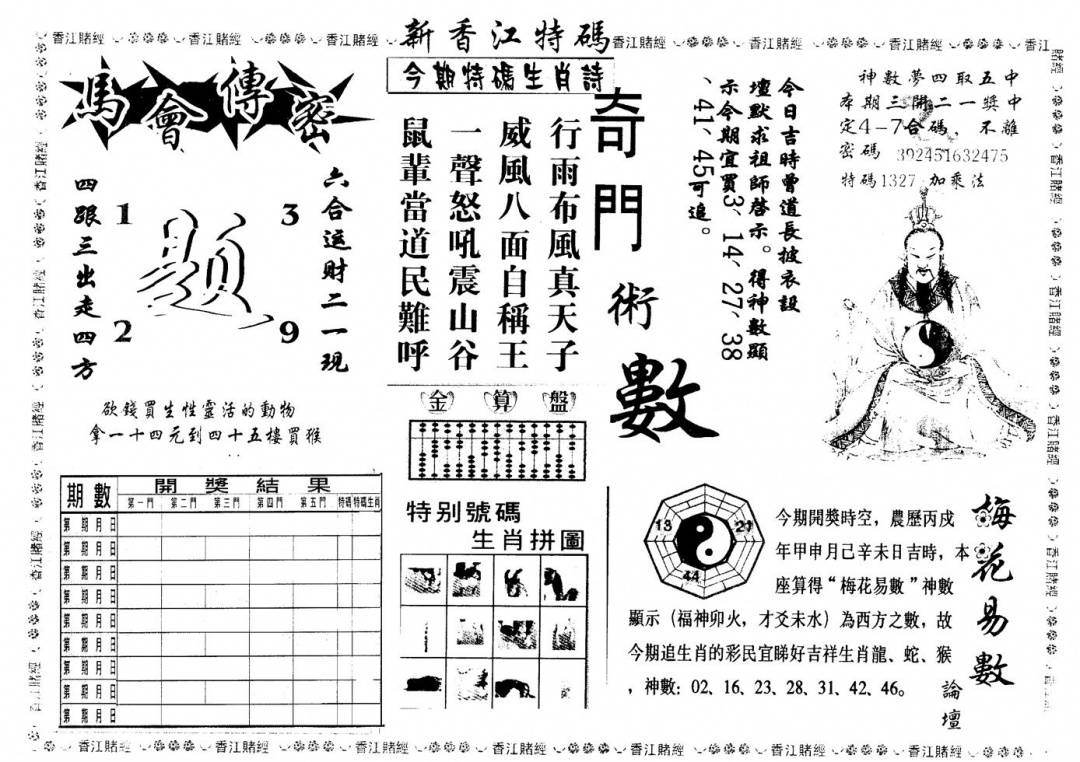 新香江特碼
今期特碼生肖詩
行雨布風真天子
威風八面自稱王
一聲怒吼震山谷
鼠輩當道民難呼
馬會傳密
六合运财二一現
四跟三出走四方
1
3
2
9
題
欲錢買生性靈活的動物
拿一十四元到四十五樓買猴
期數
開獎結果
第一門 第二門 第三門 第四門 第五門 特碼 特碼生肖
第 期 月 日
第 期 月 日
第 期 月 日
第 期 月 日
第 期 月 日
第 期 月 日
第 期 月 日
第 期 月 日
第 期 月 日
金算盤
特别號碼
生肖拼圖
奇門術數
今日吉時曾道長披衣設
壇默求祖師啓示。得神數顯
示今期宜買3、14、27、38
、41、45可追。
神數夢四取五中
本期三開二一獎中
定4-7合碼、不離
密碼 392451632475
特碼1327 加乘法
13
21
44
梅花易數
論壇
今期開獎時空，農歷丙戌
年甲申月己辛未日吉時，本
座算得“梅花易數”神數
顯示（福神卯火，才爻未水）為西方之數，故
今期追生肖的彩民宜睇好吉祥生肖龍、蛇、猴
，神數：02、16、23、28、31、42、46。
香江賭經 香江賭經 香江賭經 香江賭經 香江賭經 香江賭經 香江
香江賭經 香江賭經 香江賭經 香江賭經 香江賭經 香江賭經 香江賭經